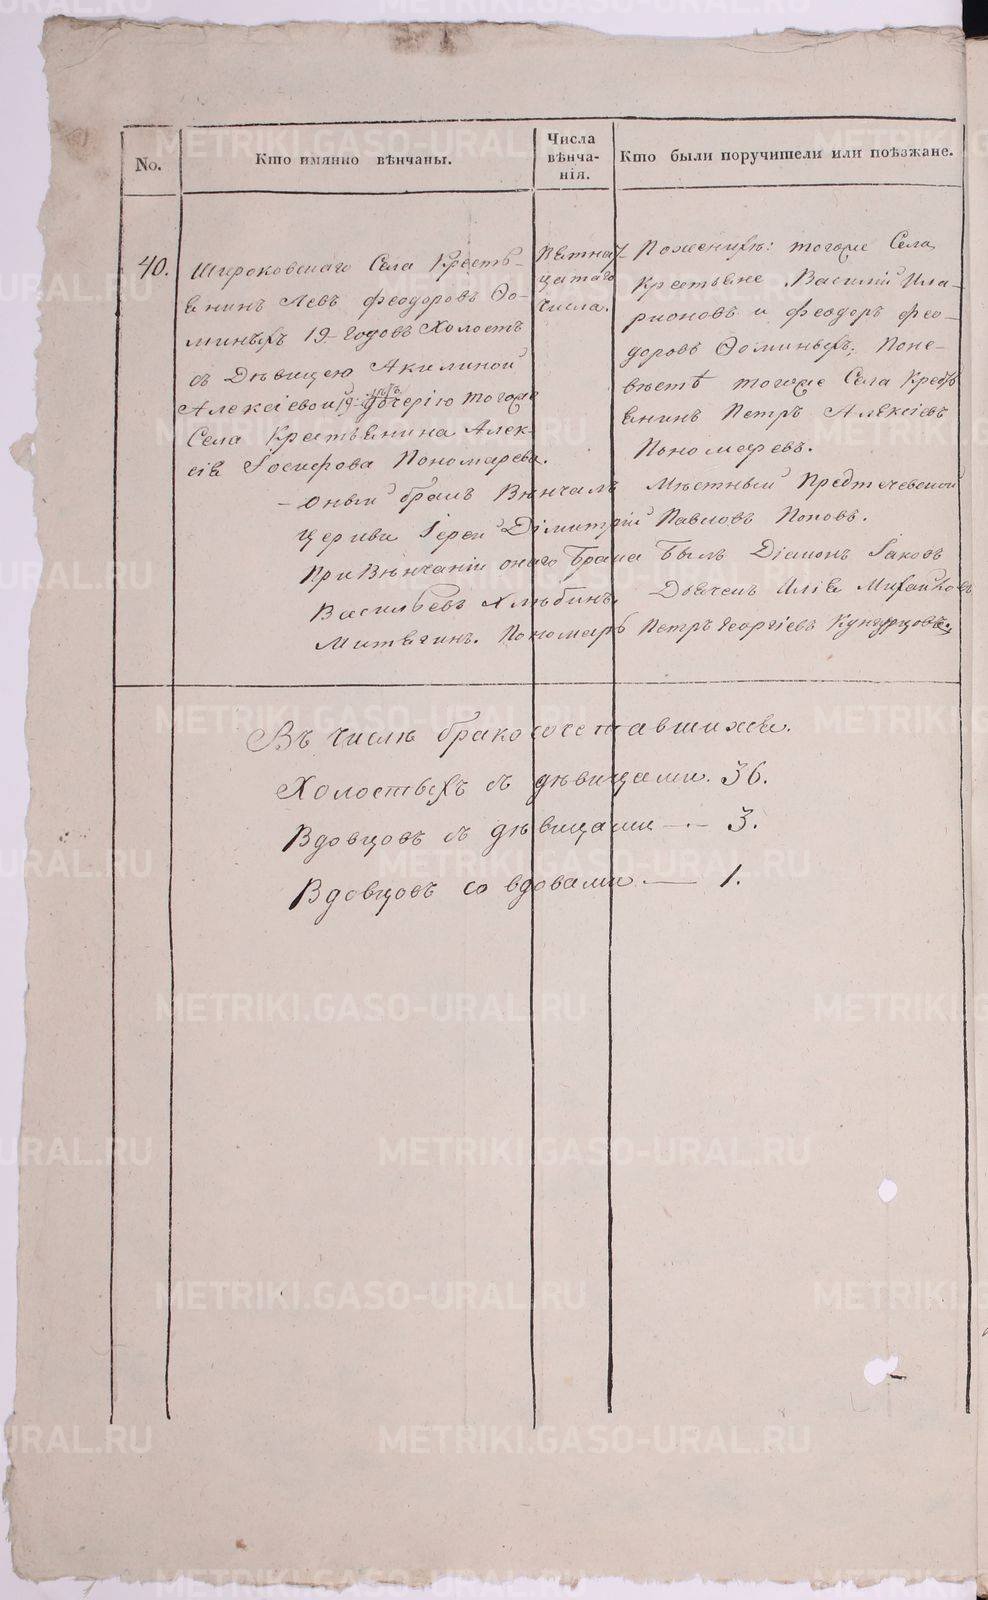 No.
Кто имянно вѣнчаны.
Числа
вѣнча-
нія.
Кто были поручители или поѣзжане.
40.
Широковскаго Села Кресть-
янинъ Левъ Феодоровъ Ѳо-
миныхъ 19 годовъ Холостъ
съ Дѣвицею Акилиной
Алексіевой 19 лѣтъ дочерію тогоже
Села Крестьянина Алек-
сія Іосифова Пономарева.
Пятнад-
цатаго
числа.
По женихѣ: тогоже Села
Крестьяне Василій Ила-
ріоновъ и Феодоръ Фео-
доровъ Ѳоминыхъ; По не-
вѣстѣ тогоже Села Кресть
янинъ Петръ Алексіевъ
Пономаревъ.
– Оный бракъ Вѣнчалъ Мѣстный Предтечевской
Церкви Іерей Димитрій Павловъ Поповъ.
При Вѣнчаніи онаго Брака Былъ Діаконъ Іаковъ
Васильевъ Хлѣбинъ. Дьячекъ Илія Михайловъ
Митягинъ. Пономарь Петръ Георгіевъ Кунгурцовъ.
Въ числѣ бракосочетавшихся.
Холостыхъ съ дѣвицами. 36.
Вдовцовъ съ дѣвицами — 3.
Вдовцовъ со вдовами — 1.
METRIKI.GASO-URAL.RU